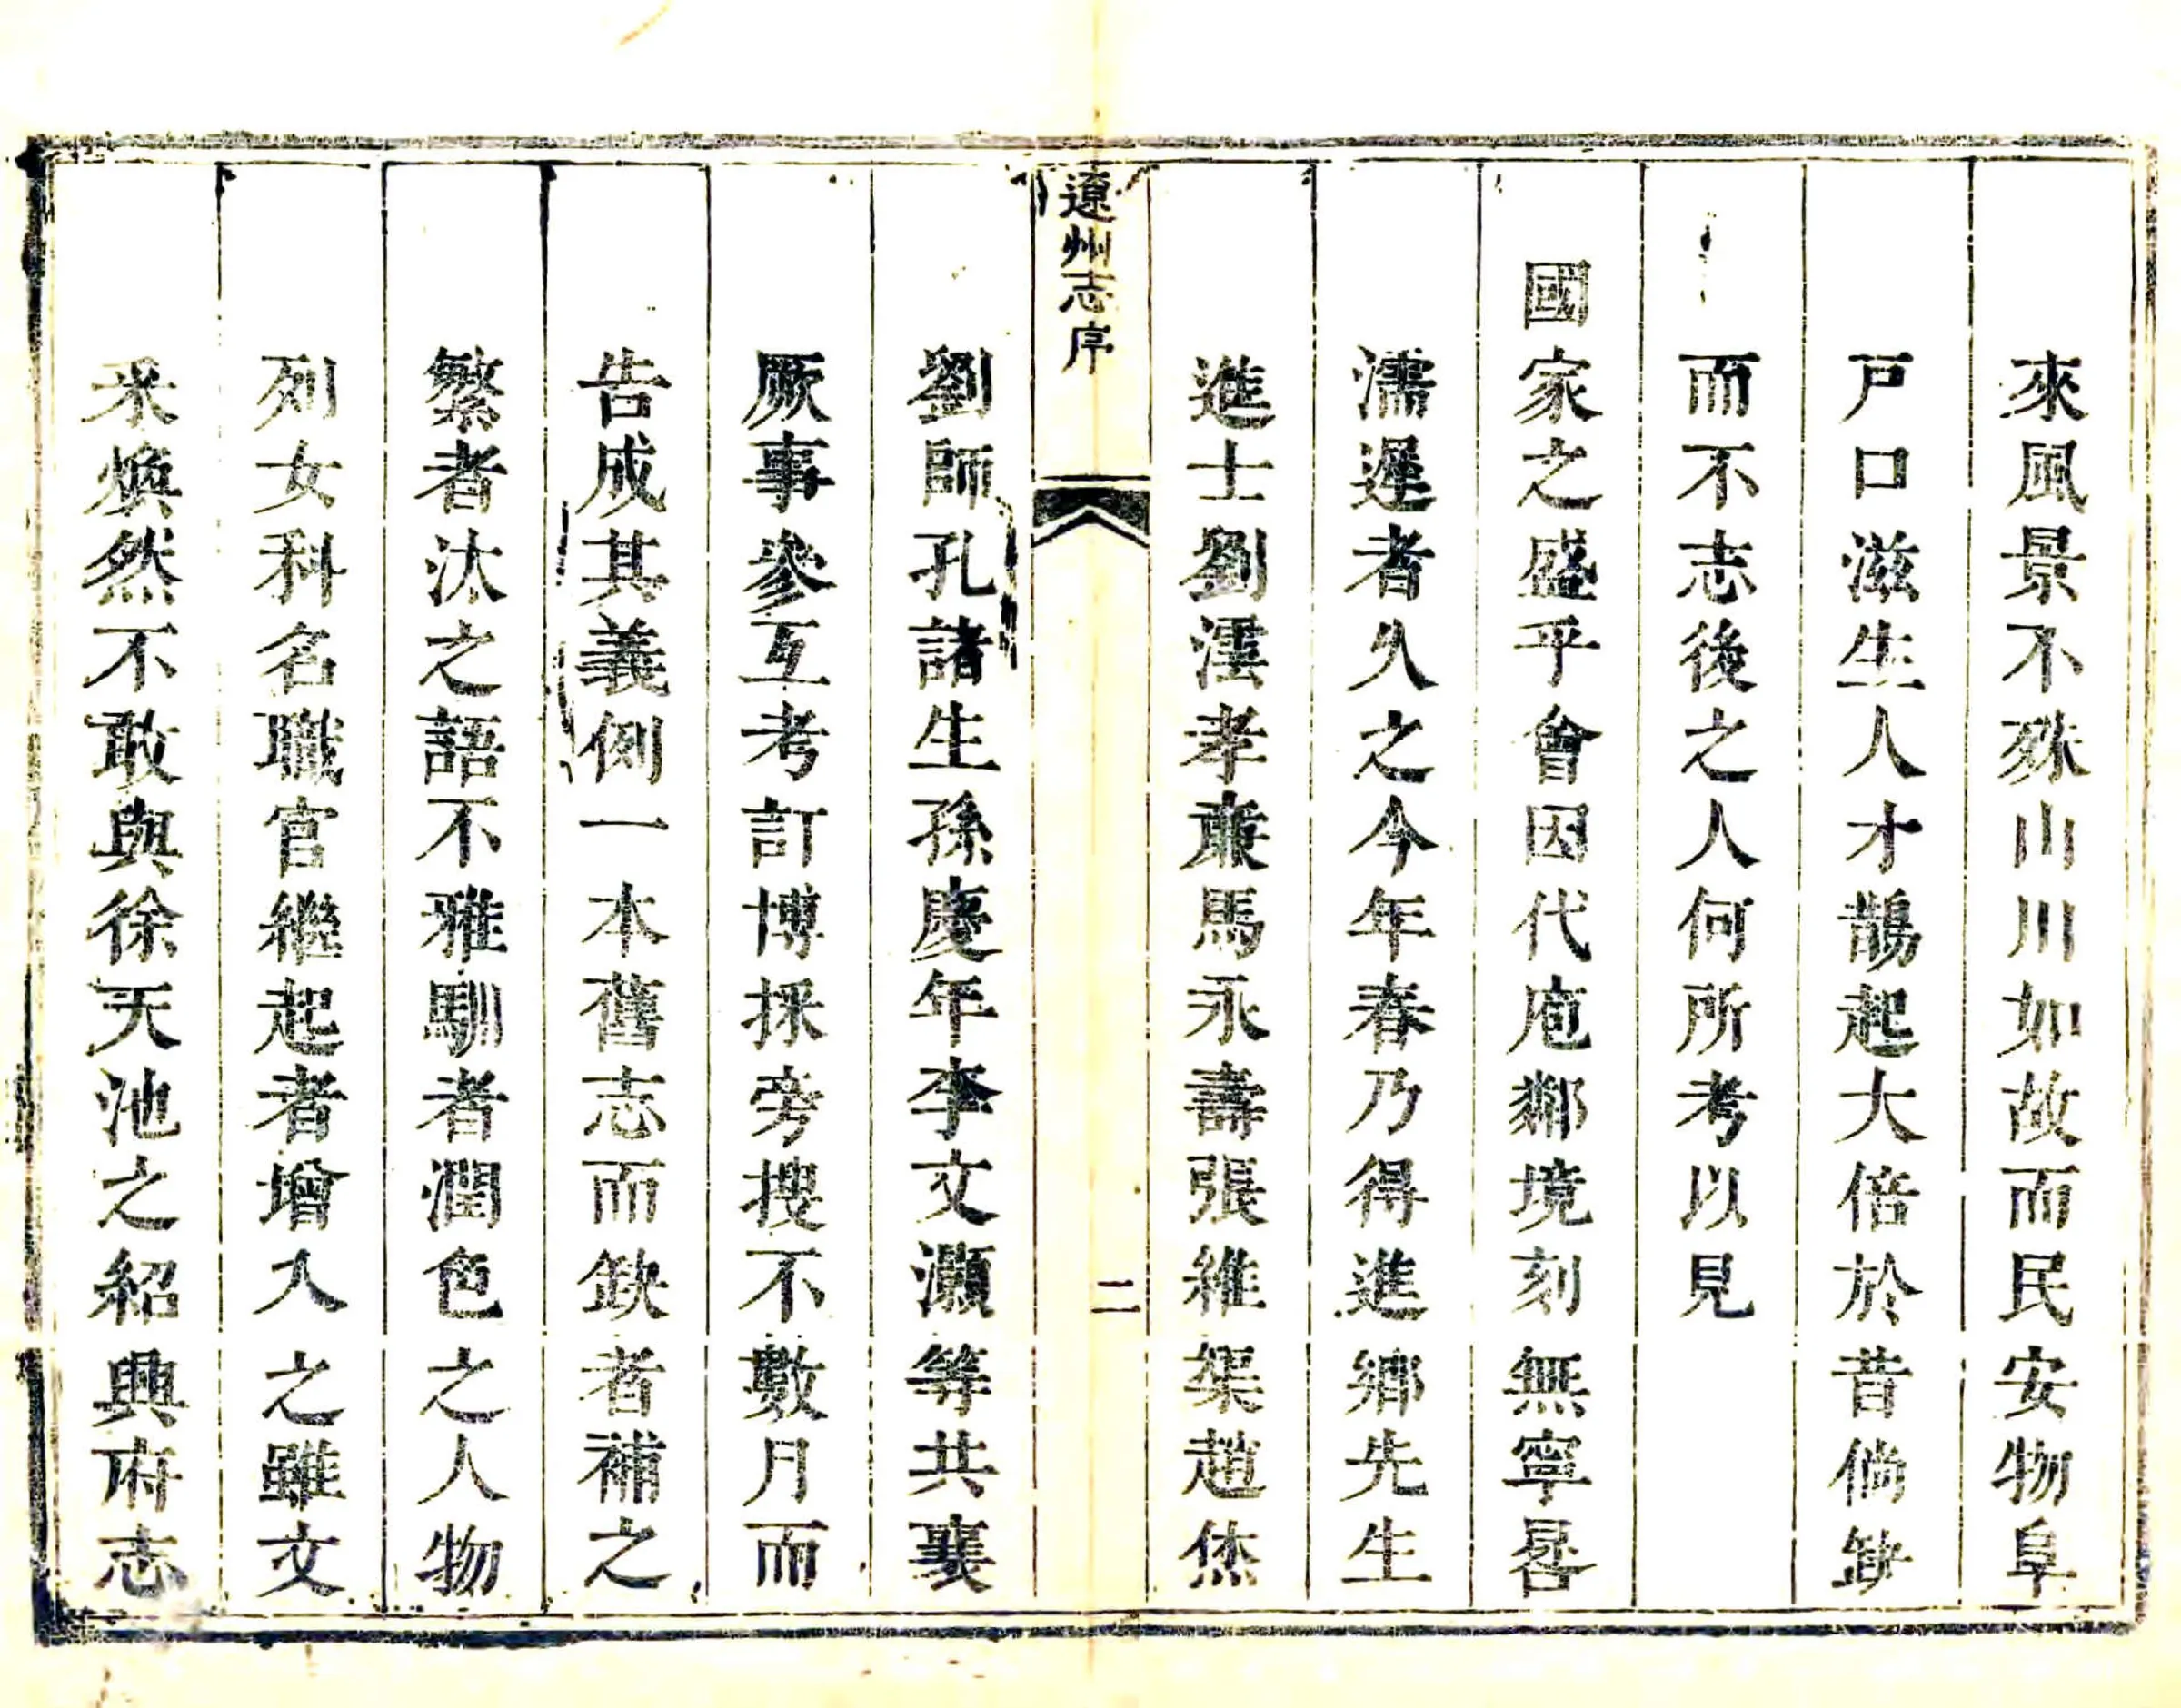 來風景不殊山川如故而民安物阜
戸口滋生人才鵲起大倍於昔倘缺
而不志後之人何所考以見
國家之盛乎會因代庖鄰境刻無寧晷
濡遲者久之今年春乃得進鄉先生
進士劉澐孝亷馬永壽張維榘趙烋
遼州志序
二
劉師孔諸生孫慶年李文灝等共襄
厥事參互考訂博採旁搜不數月而
告成其義例一本舊志而缺者補之
繁者汰之語不雅馴者潤色之人物
列女科名職官繼起者增入之雖文
采煥然不敢與徐天池之紹興府志